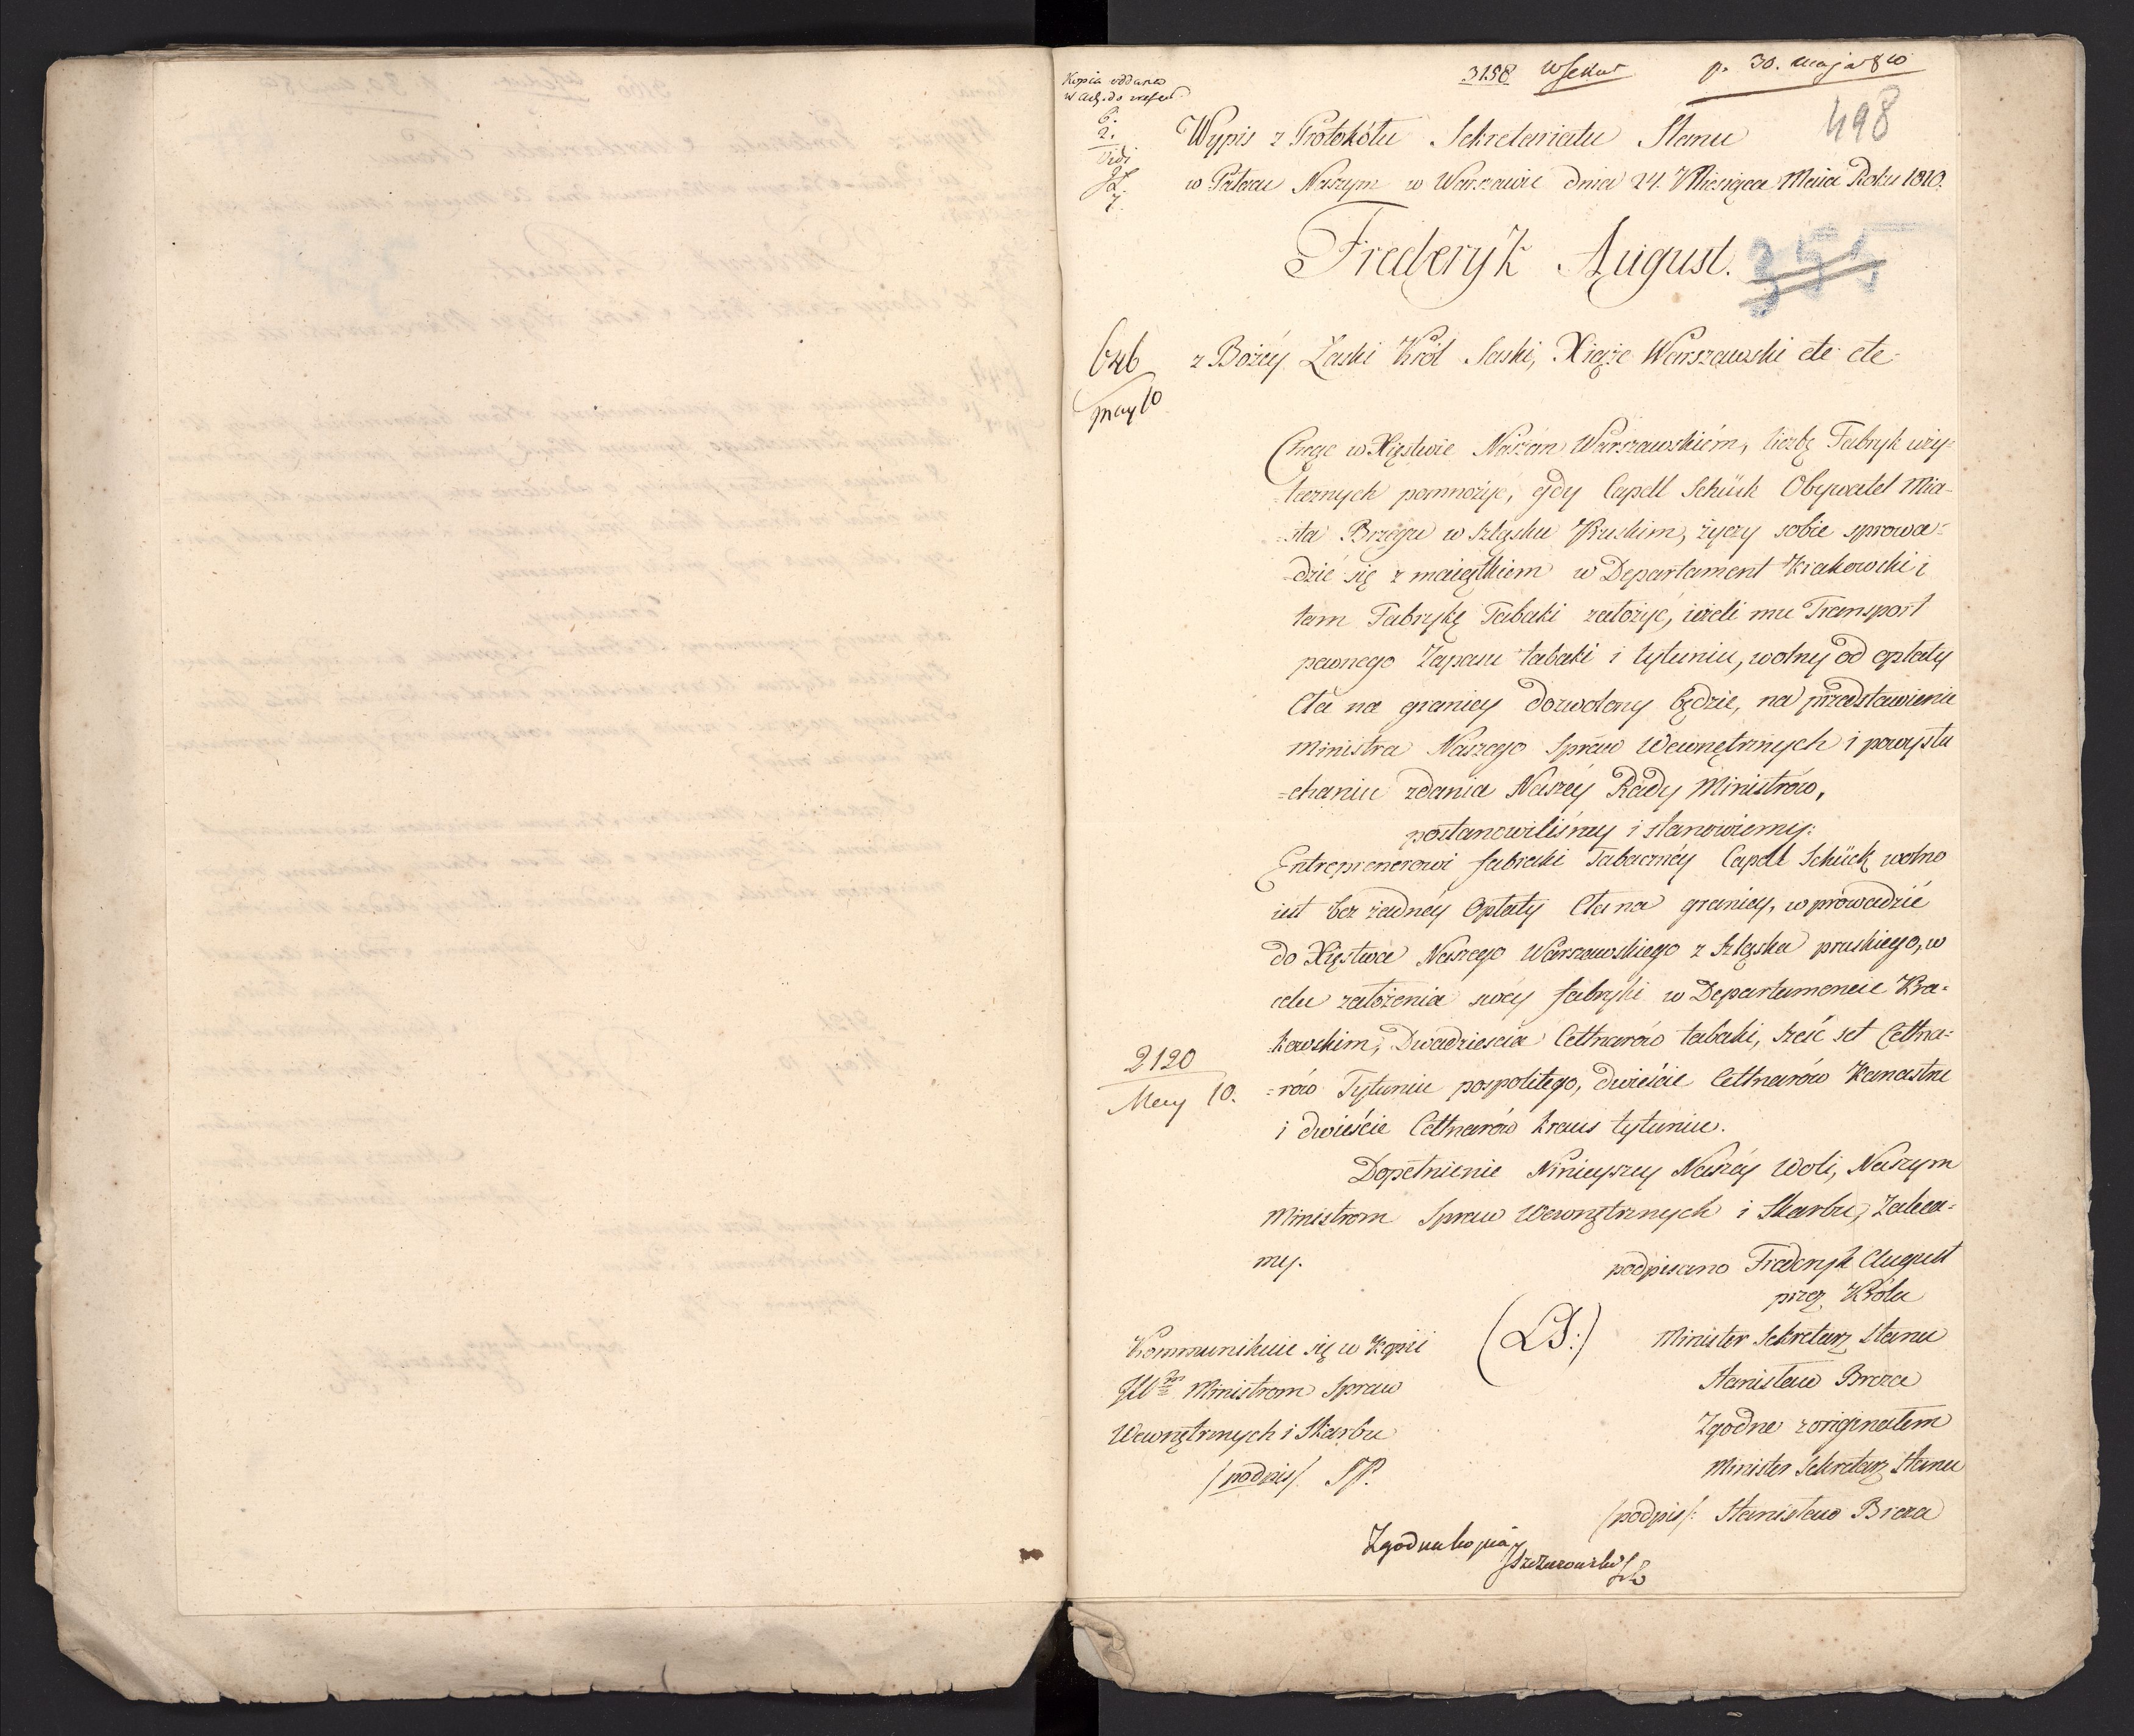 Kopia oddana
w
3158 p. 30. maja 810
498
6.
2.
Vidi
Wypis z Protokółu Sekretariatu Stanu
w Pałacu Naszym w Warszawie dnia 24. Miesiąca Maia Roku 1810.
Frederyk August.
355
646
may 10
z Bożéy Łaski Król Saski, Xiąże Warszawski etc etc:
Chcąc w Xięstwie Naszém Warszawskiém, liczbę Fabryk uży=
=tecznych pomnożyć, gdy Capell Schück Obywatel Mia=
=sta Brzegu w Szląsku Pruskim, życzy sobie sprowa=
=dzić się z maiątkiem w Departament Krakowski i
tam Fabrykę Tabaki założyć, ieżeli mu Transport
pewnego Zapasu tabaki i tytuniu, wolny od opłaty
Cła na granicy dozwolony będzie, na przedstawienie
Ministra Naszego Spraw Wewnętrznych i powysłu
=chaniu zdania Naszéy Rady Ministrów,
postanowiliśmy i stanowiemy:
Entreprenerowi fabryki Tabacznéy Capell Schück wolno
iest bez żadnéy Opłaty Cła na granicy, wprowadzić
do Xięstwa Naszego Warszawskiego z Szląska pruskiego, w
celu założenia swéy fabryki w Departamencie Kra=
kowskim, Dwadzieścia Cettnarów tabaki, sześć set Cettna=
=rów Tytuniu pospolitego, dwieście Cettnarów Kanastru
i dwieście Cettnarów kraus tytuniu.
2120
May 10.
Dopełnienie Ninieyszey Naszéy Woli, Naszym
Ministrom Spraw Wewnętrznych i Skarbu, Zaleca=
my.
podpisano Frederyk August
przez Króla
(LS:)
Minister Sekretarz Stanu
Stanisław Breza
Kommunikuie się w Kopii
JW Ministrom Spraw
Wewnętrznych i Skarbu
/podpis/
Zgodne z originałem
Minister Sekretarz Stanu
/podpis/: Stanisław Breza
Zgodna kopia